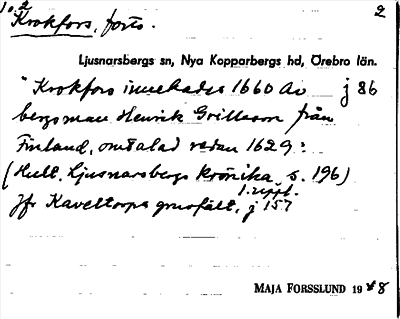 10.2
Krokfors, forts. 2
Ljusnarsbergs sn, Nya Kopparbergs hd, Örebro län.
"Krokfors innehades 1660 av j 86
bergsman Henrik Grillsson från
Finland, omtalad redan 1629:
(Hult. Ljusnarsbergs krönika s. 196)
1. uppl.
Jfr Kaveltorps gruvfält, j 157
MAJA FORSSLUND 1948